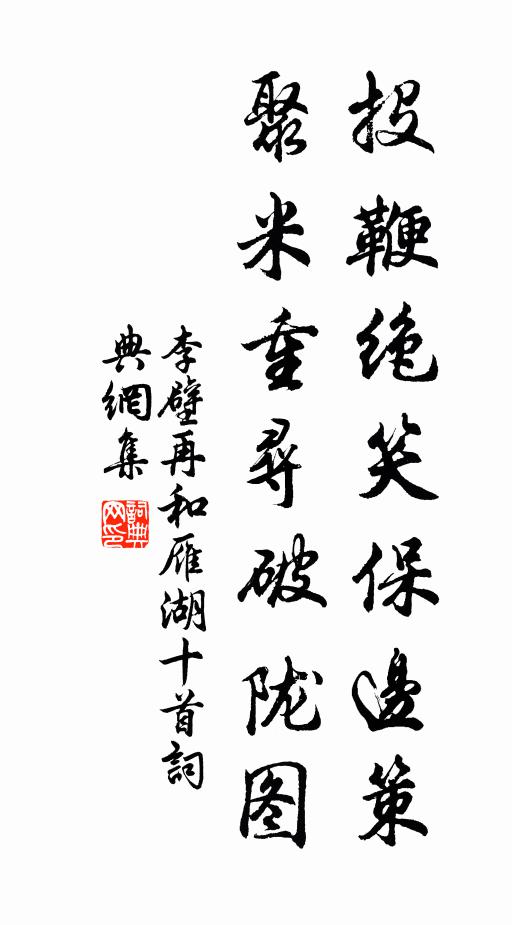 投鞭绝笑保邊策
聚米重尋破陇图
李壁再和雁湖十首詞
典網集
詞典網印